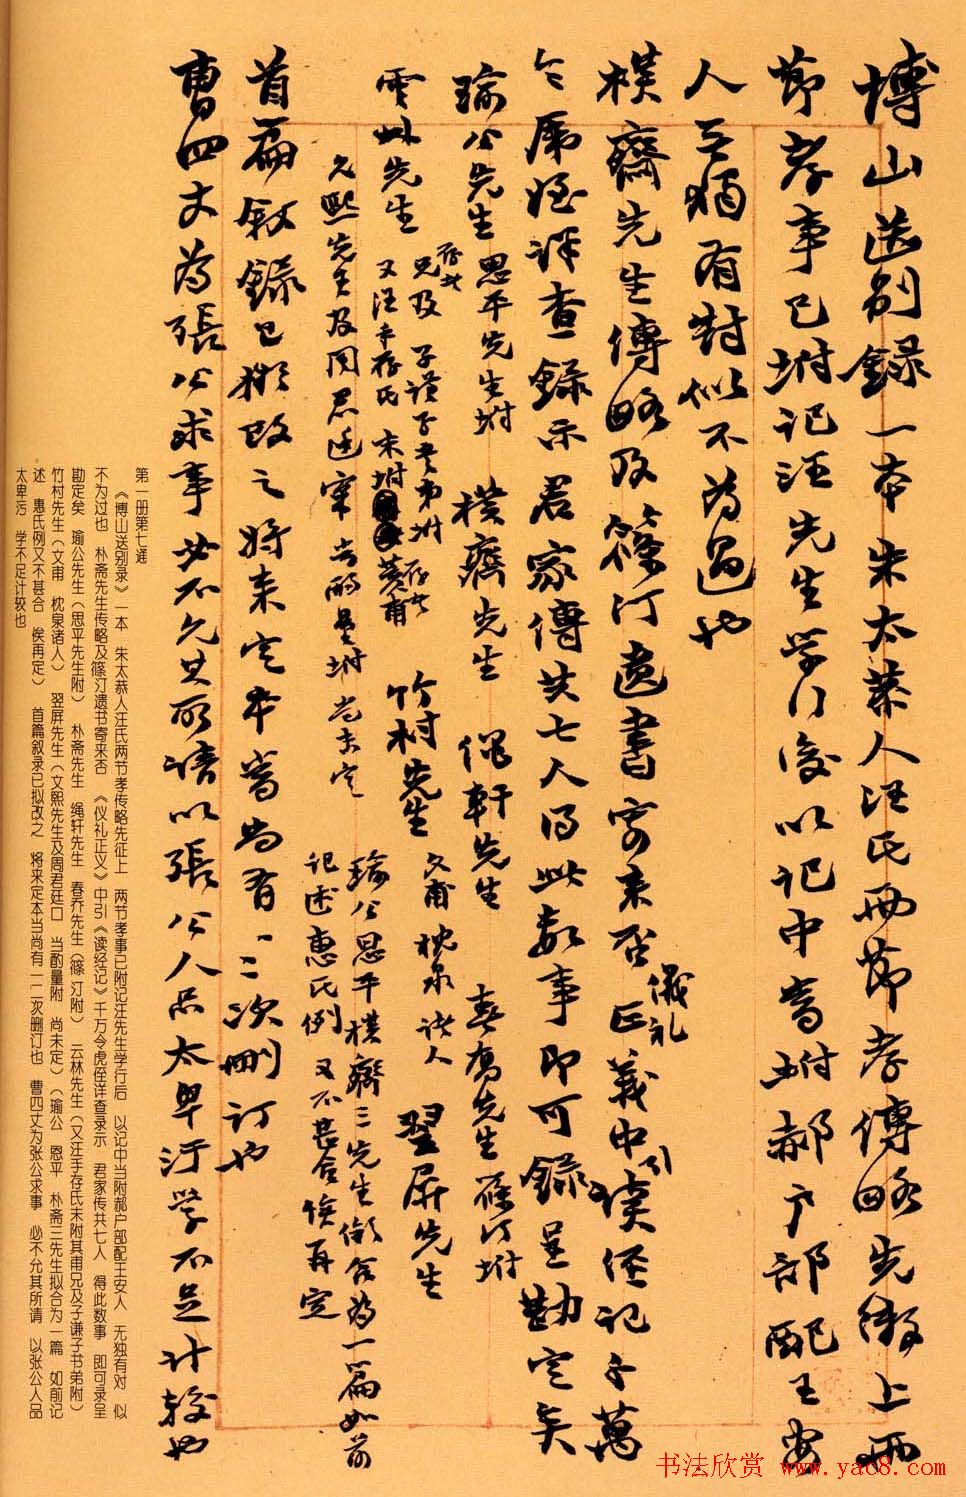 博山送别錄一本朱太恭人汪氏兩節孝傳略先徵上兩
節孝事已坿記汪先生学行後以記中當坿郝户部配王安
人無獨有對似不為過也
樸齋先生傳略及篠汀遗書寄来否儀礼正義中引讀经記千萬
令虎姪詳查錄示君家傳共七人得此数事即可錄呈勘定矣
瑜公先生思平先生坿 樸齋先生 绳軒先生 春喬先生篠汀坿
雲林先生 竹村先生文甫枕泉诸人 翌屏先生
首篇叙錄已擬改之将来定本當尚有一二次删订也
曹四丈為張公求事必不允其所请以張公人品太卑汙学不足计较也
第一册第七通
《博山送别录》一本　朱太恭人汪氏两节孝传略先征上　两节孝事已附记汪先生学行后　以记中当附郝户部配王安人　无独有对　似
不为过也　朴斋先生传略及篠汀遗书寄来否　《仪礼正义》中引《读经记》千万令虎侄详查录示　君家传共七人　得此数事　即可录呈
勘定矣　瑜公先生（思平先生附）　朴斋先生　绳轩先生　春乔先生（篠汀附）　云林先生（又汪手存氏末附其甫兄及子谦子书弟附）
竹村先生（文甫　枕泉诸人）　翌屏先生（文熙先生及周君廷口　当酌量附　尚未定）（瑜公　恩平　朴斋三先生拟合为一篇　如前记
述　惠氏例又不甚合　俟再定）　首篇叙录已拟改之　将来定本当尚有一二次删订也　曹四丈为张公求事　必不允其所请　以张公人品
太卑污　学不足计较也
书法欣赏 www.yac8.com